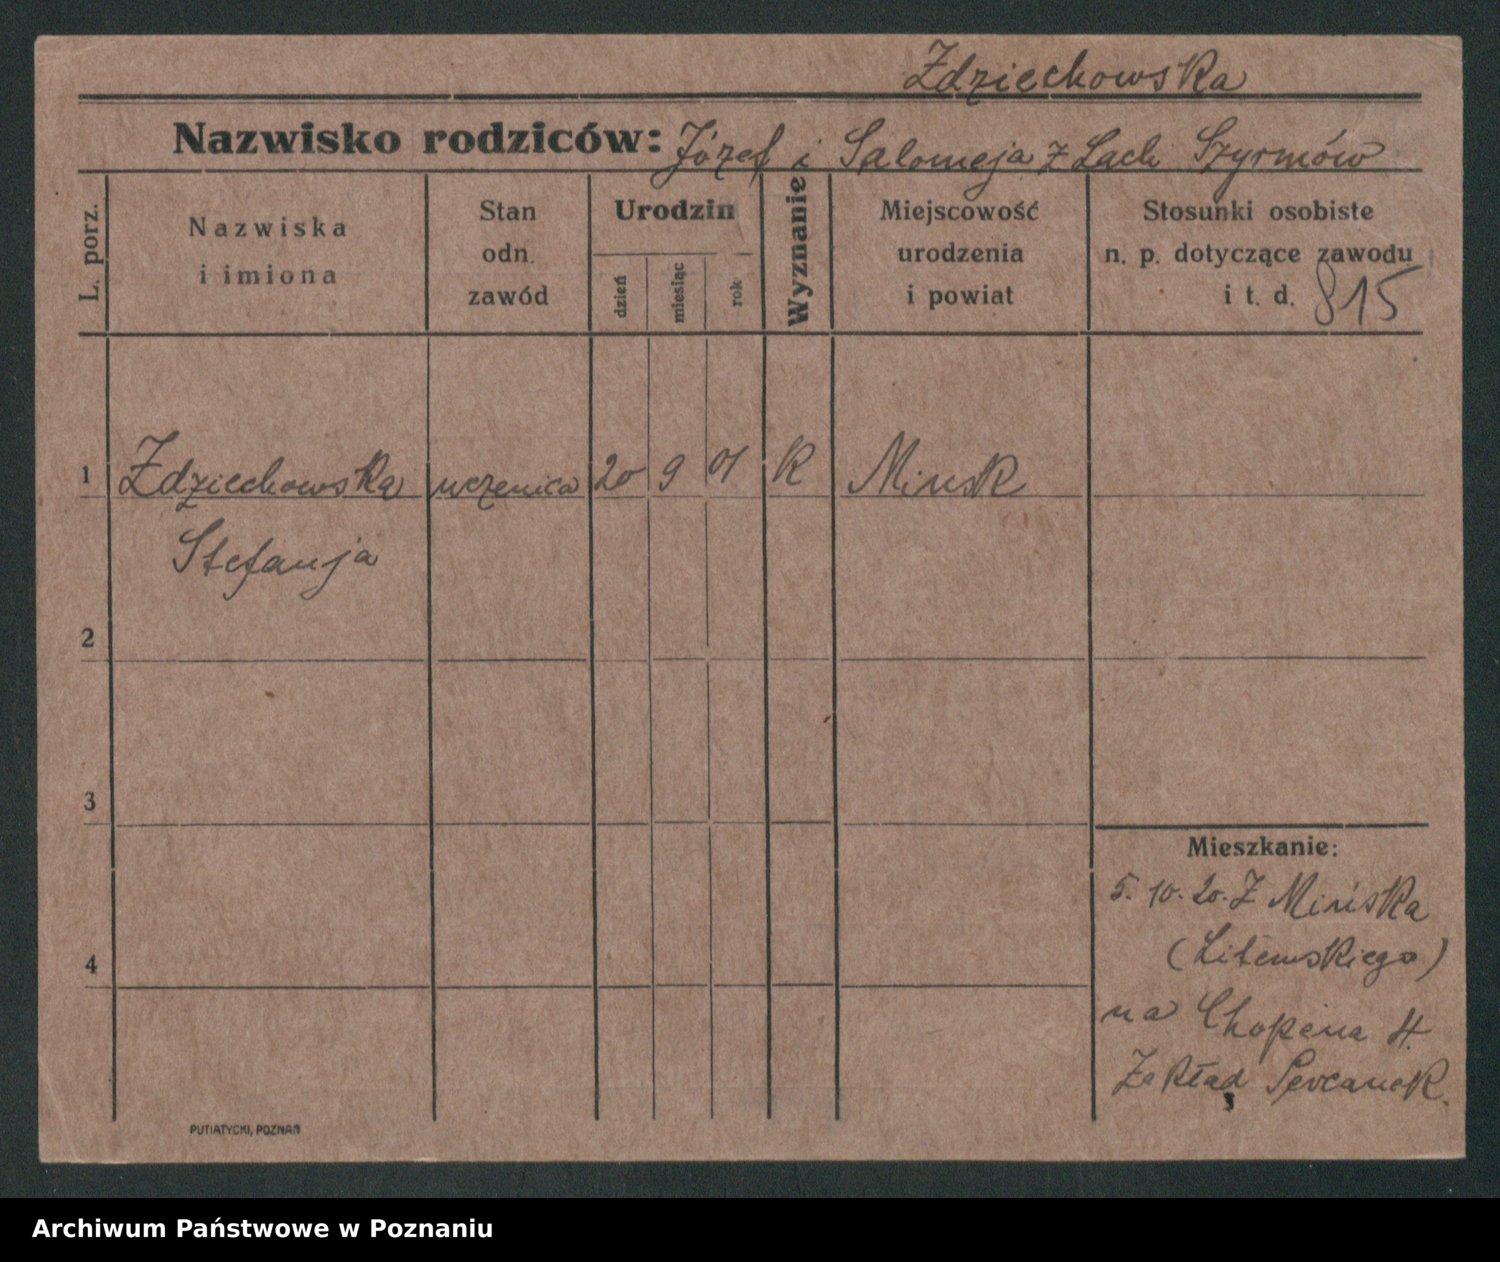 Zdziechowska
Nazwisko rodziców: Józef i Salomeja z Lach Szyrmów
L. porz.
Nazwiska
i imiona
Stan
odn.
zawód
Urodzin
dzień
miesiąc
rok
Wyznanie
Miejscowość
urodzenia
i powiat
Stosunki osobiste
n. p. dotyczące zawodu
i t. d. 815
1 Zdziechowska uczenica 20 9 01 K Minsk
Stefanja
2
3
4
Mieszkanie:
5. 10. 20. Z Mińska
(Litewskiego)
na Chopina 4.
Zakład Sercanek.
PUTIATYCKI, POZNAŃ
Archiwum Państwowe w Poznaniu